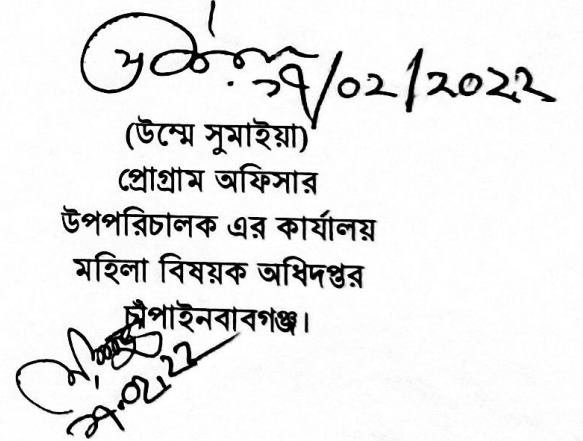 /02/2022
(উম্মে সুমাইয়া)
প্রোগ্রাম অফিসার
উপপরিচালক এর কার্যালয়
মহিলা বিষয়ক অধিদপ্তর
চাঁপাইনবাবগঞ্জ।
.02.22